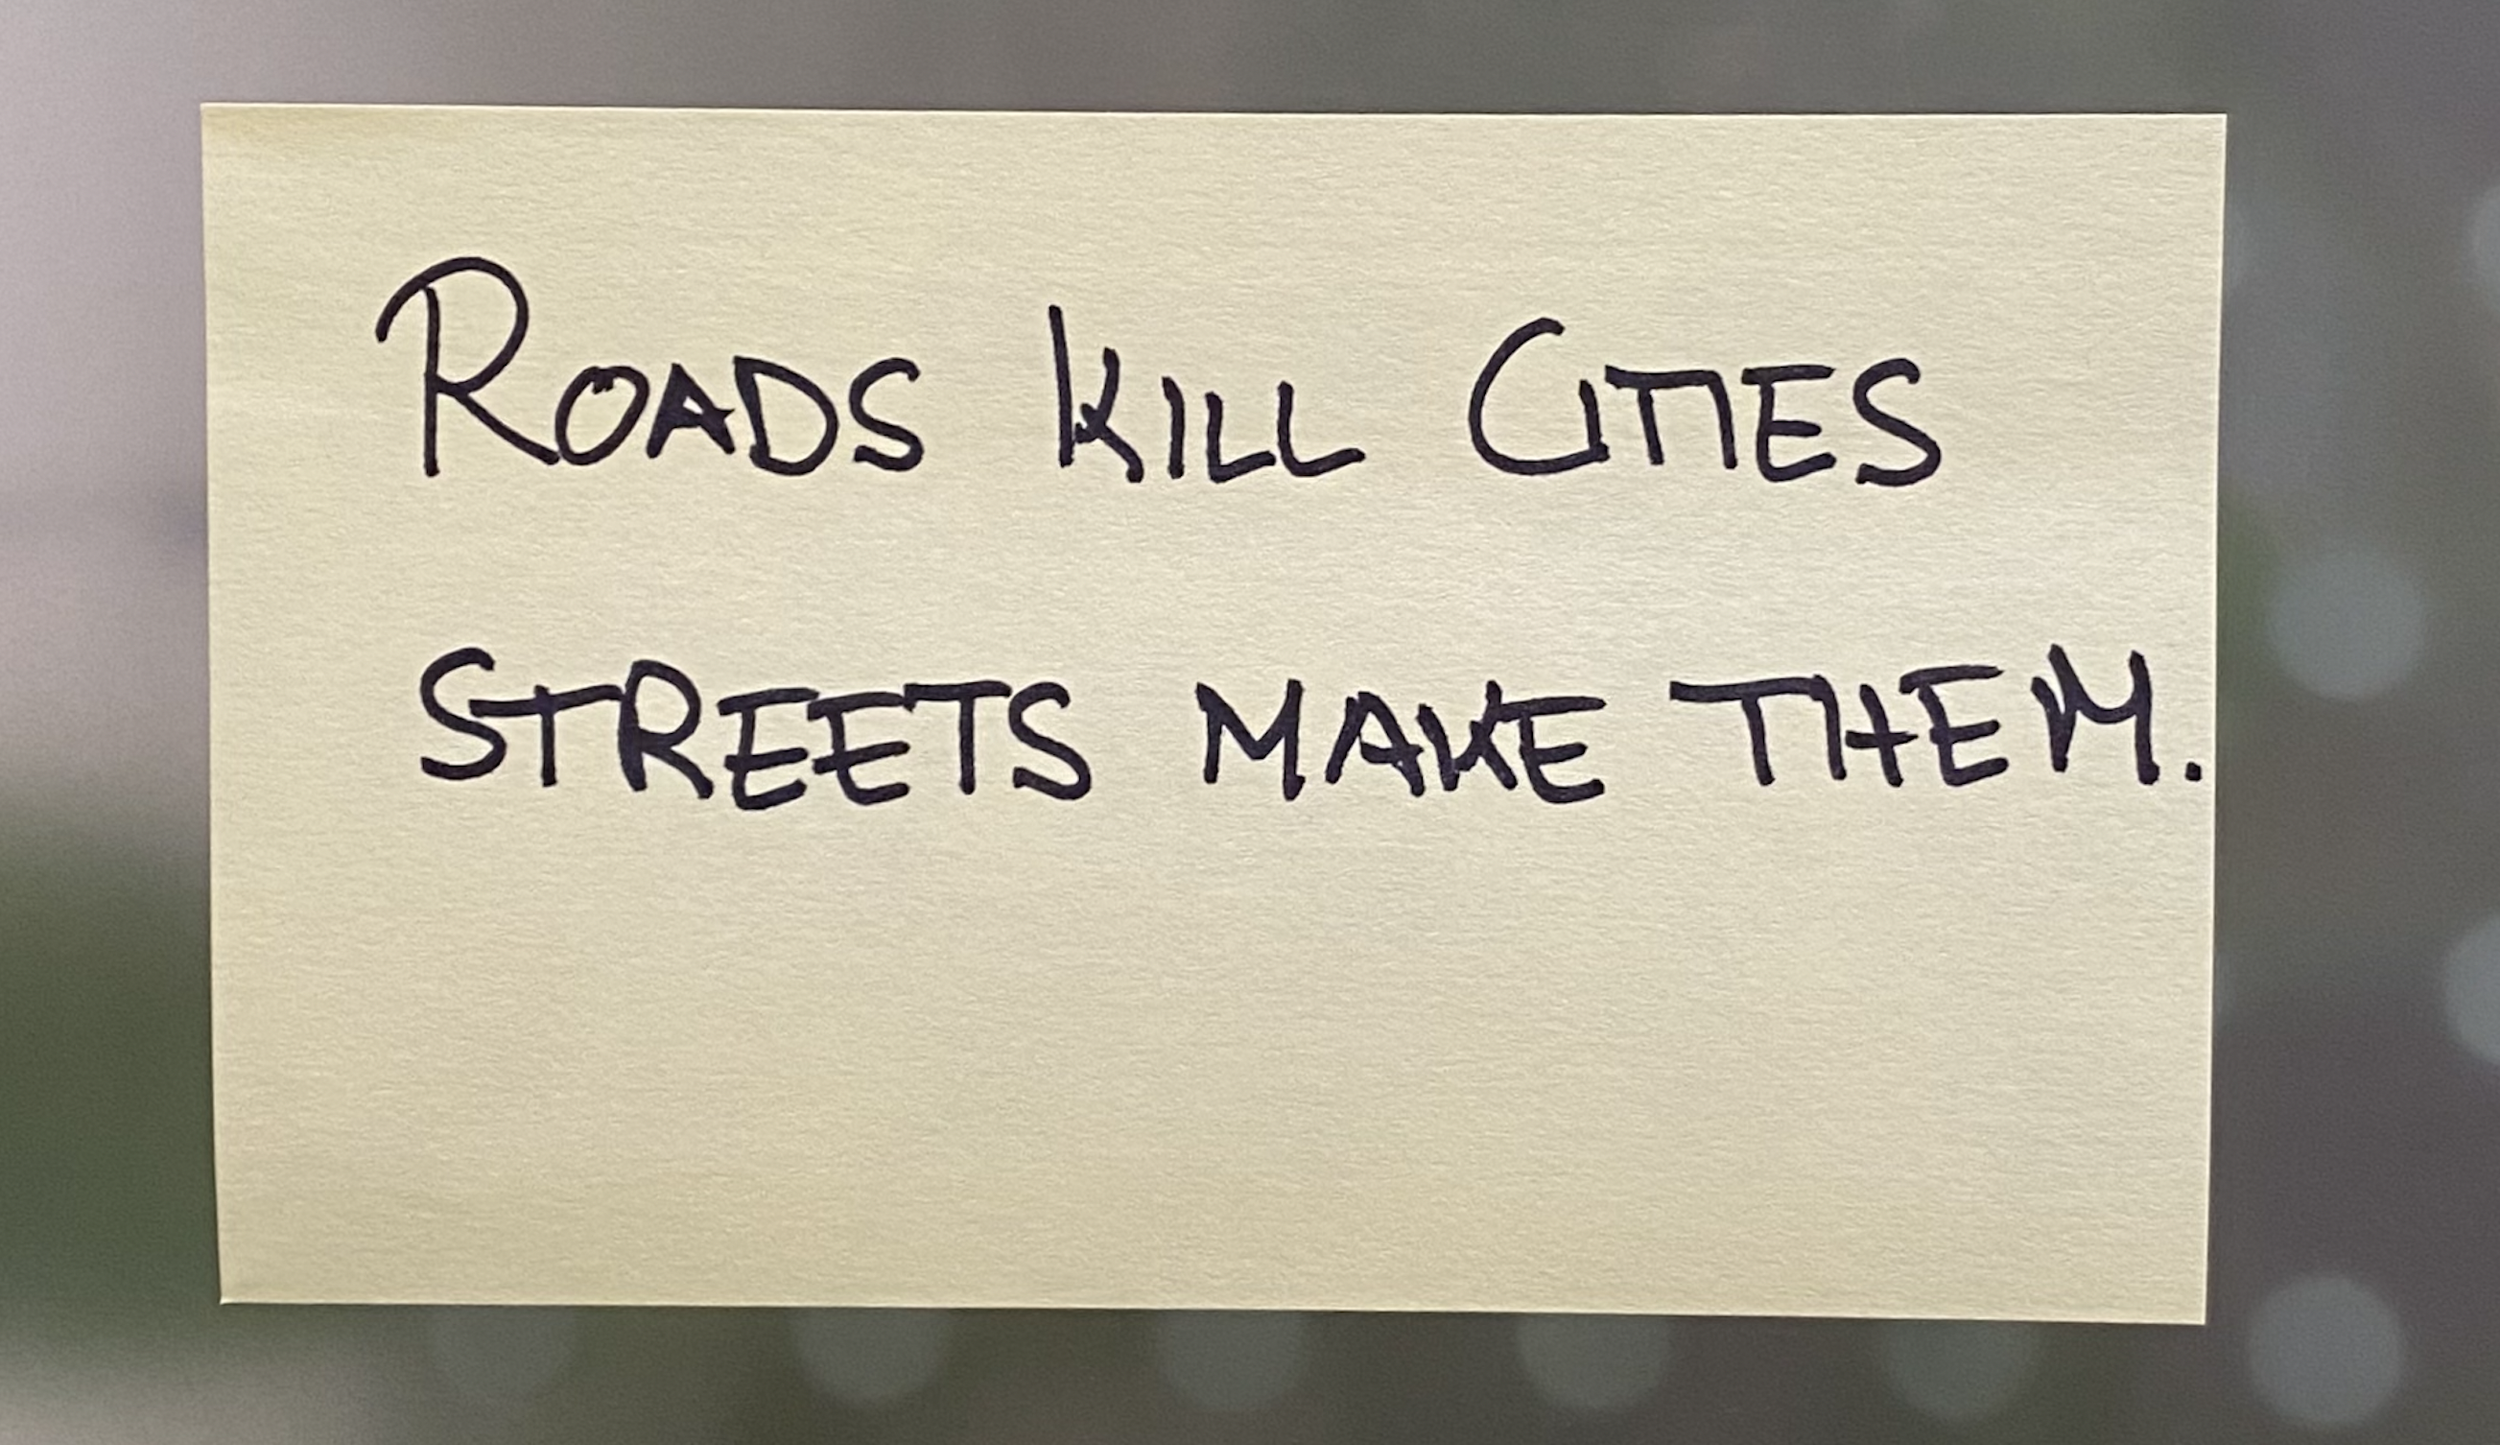 ROADS KILL CITIES
STREETS MAKE THEM.